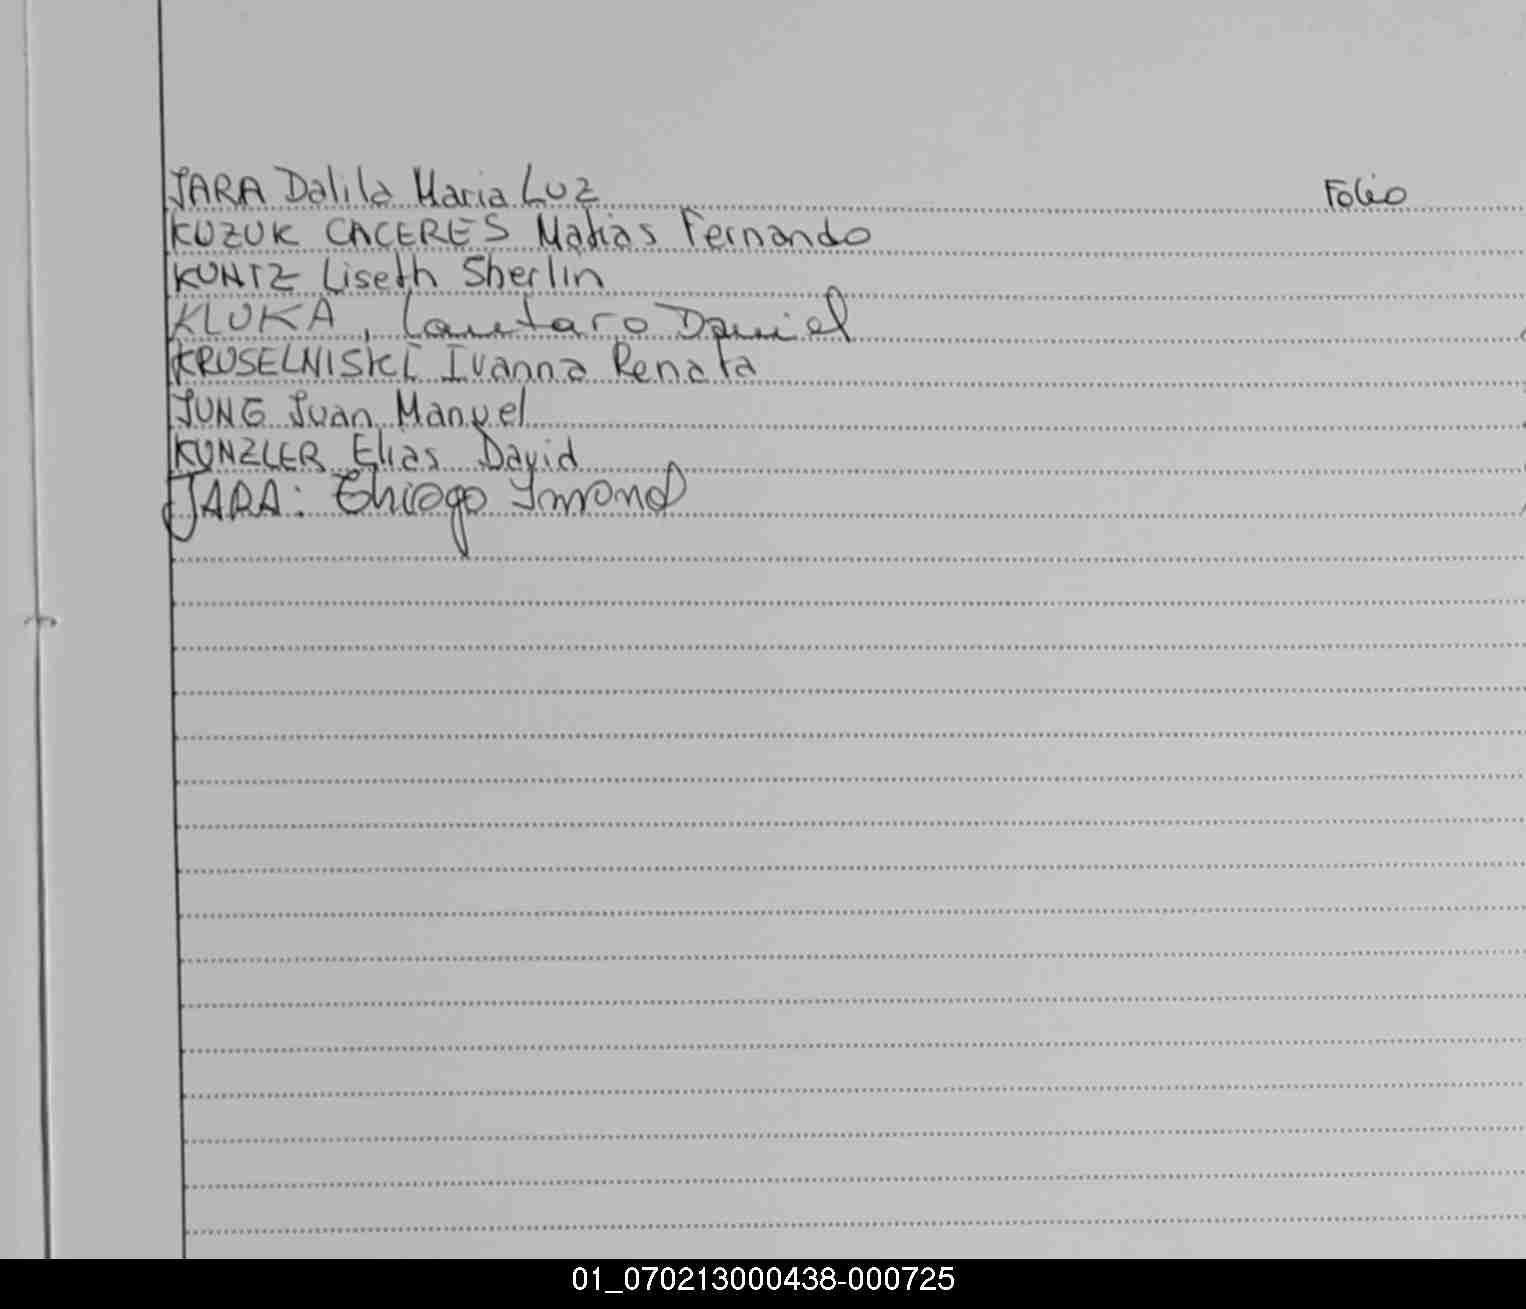 JARA Dalila Maria Luz Folio
KUZUK CACERES Matias Fernando
KUNTZ Liseth Sherlin
KLUKA, Lautaro Daniel
KRUSELNISKI Ivanna Renata
JUNG Juan Manuel
KUNZLER Elias David
JARA: Thiago
01_070213000438-000725